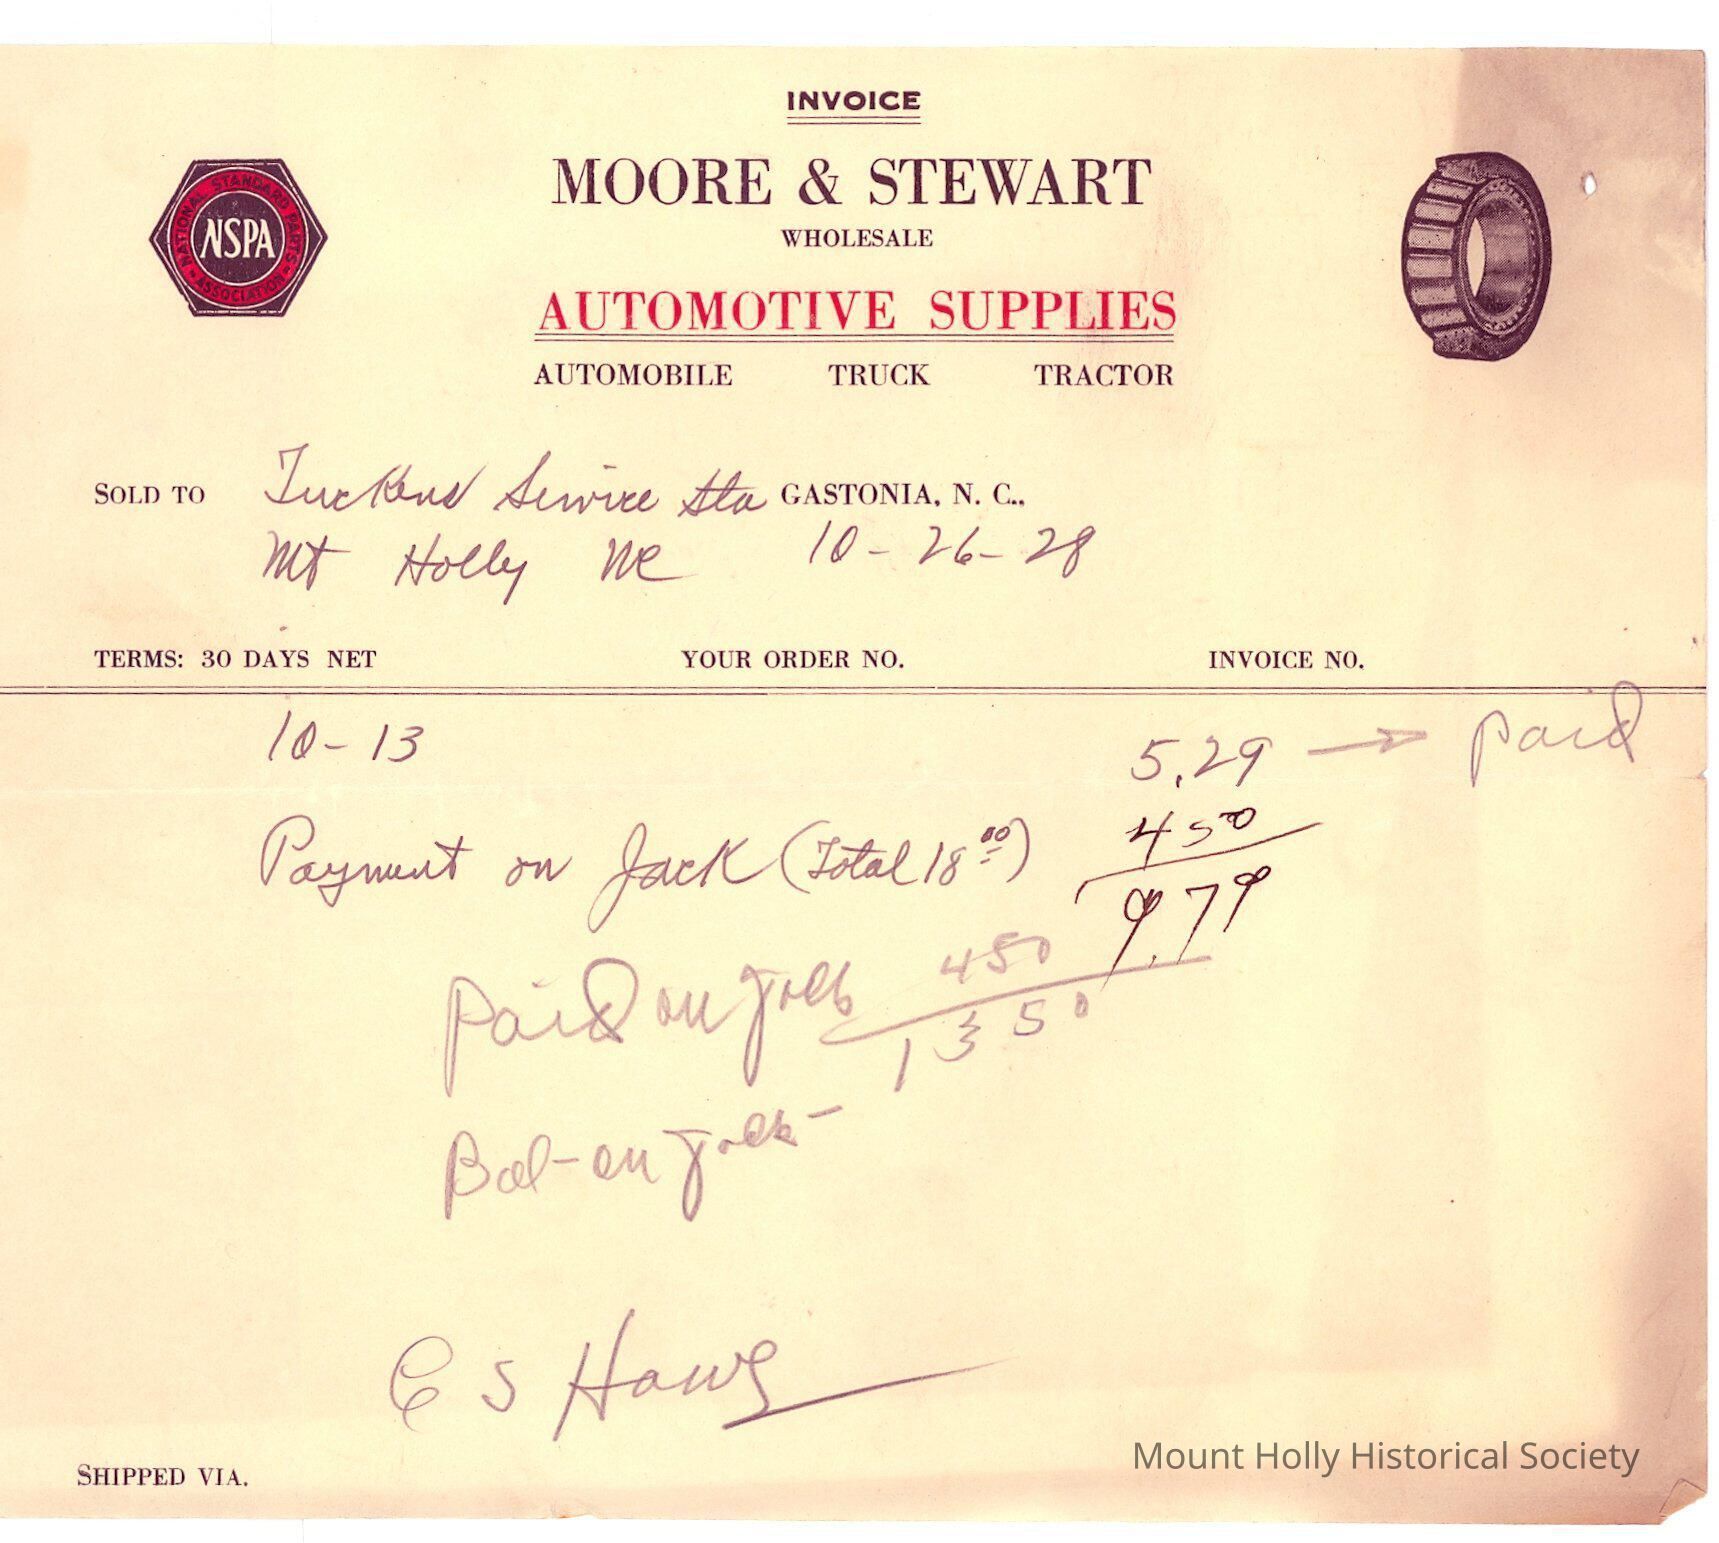 INVOICE
MOORE & STEWART
WHOLESALE
NATIONAL STANDARD PARTS
NSPA
- ASSOCIATION -
AUTOMOTIVE SUPPLIES
AUTOMOBILE TRUCK TRACTOR
SOLD TO Tuckers Service Sta GASTONIA, N. C.,
Mt Holly NC 10-26-28
TERMS: 30 DAYS NET YOUR ORDER NO. INVOICE NO.
10-13 5.29 → paid
Payment on Jack (Total 18 00) 4 50
9.79
paid on Jack 4 50
13 50
Bal- on Jack -
C S Haws
SHIPPED VIA.
Mount Holly Historical Society